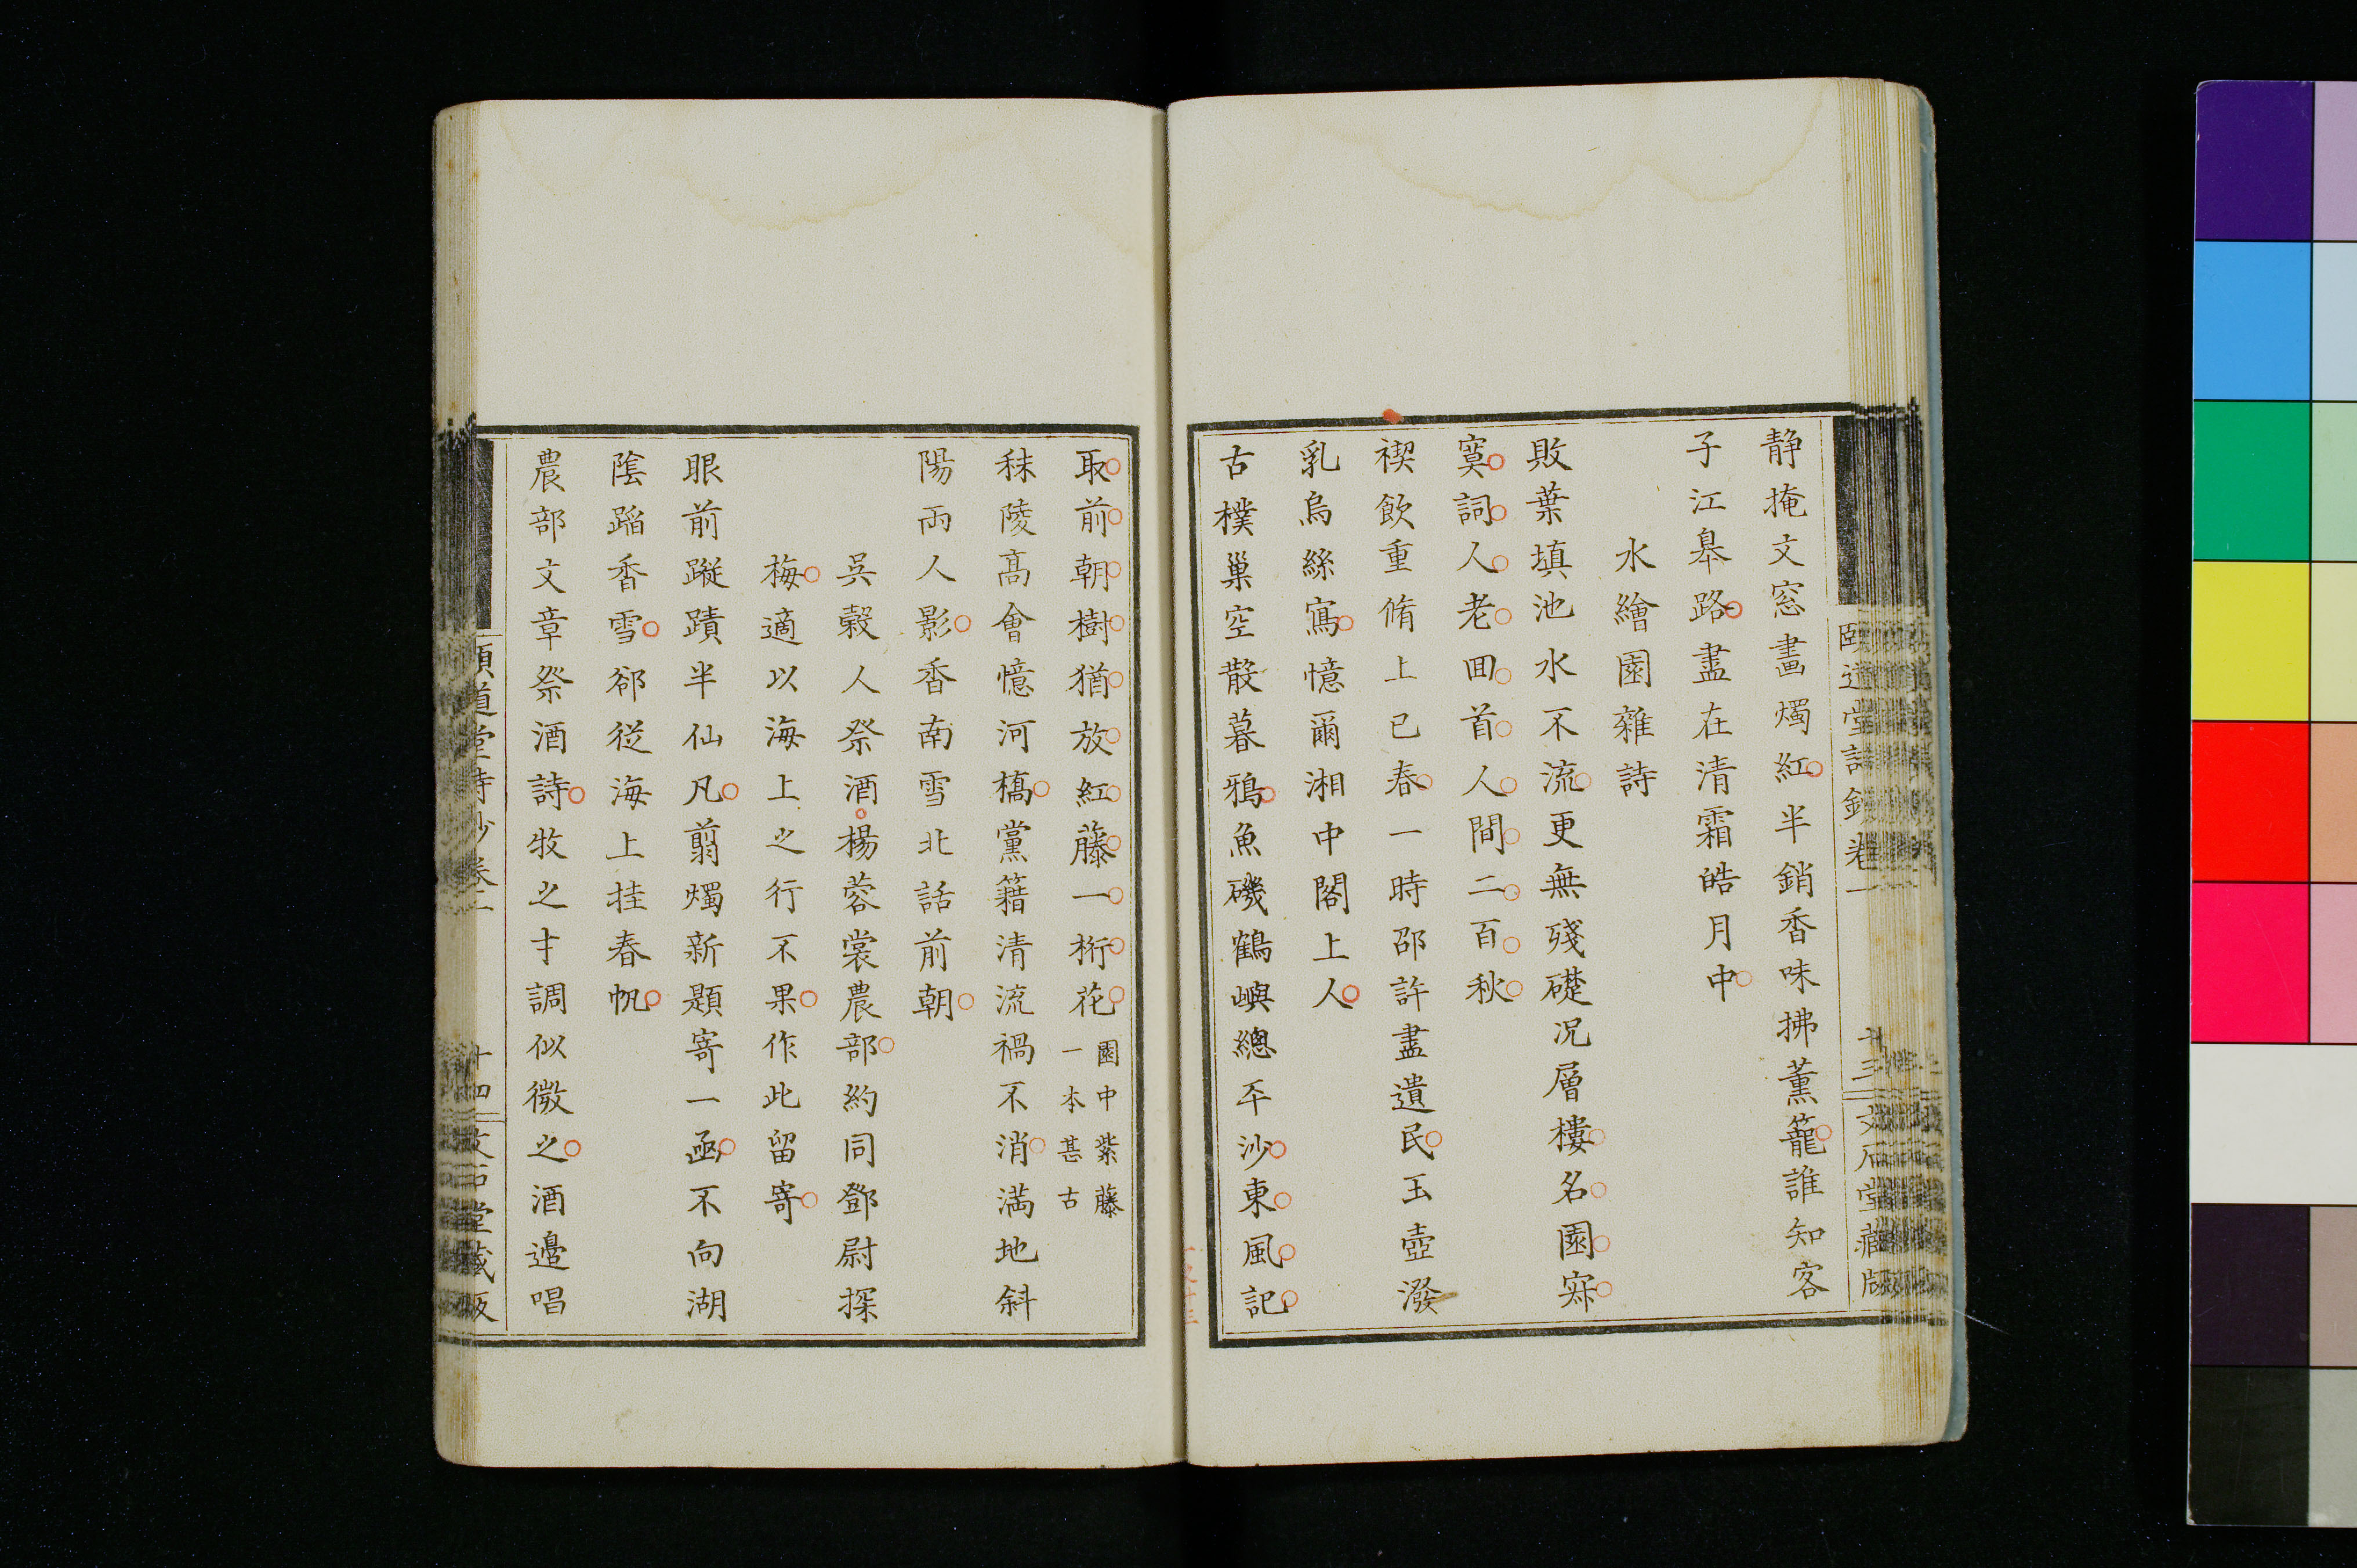 静掩文窓畫燭紅半銷香味拂薰籠誰知客
子江皐路盡在清霜皓月中
水繪園雜詩
敗葉填池水不流更無殘礎况層樓名園寂
寞詞人老回首人間二百秋
禊飲重脩上巳春一時邵許盡遺民玉壺潑
乳烏絲寫憶爾湘中閣上人
古樸巢空散暮鴉魚磯鶴嶼總平沙東風記
取前朝樹猶放紅藤一桁花
園中紫藤
一本甚古
秣陵髙會憶河橋黨籍清流禍不消満地斜
陽兩人影香南雪北話前朝
吳穀人祭酒楊蓉裳農部約同鄧尉探
梅適以海上之行不果作此留寄
眼前蹤蹟半仙凡翦燭新題寄一函不向湖
陰蹈香雪卻從海上挂春帆
農部文章祭酒詩牧之才調似微之酒邊唱
頤道堂詩鈔卷二
十四
文石堂藏版